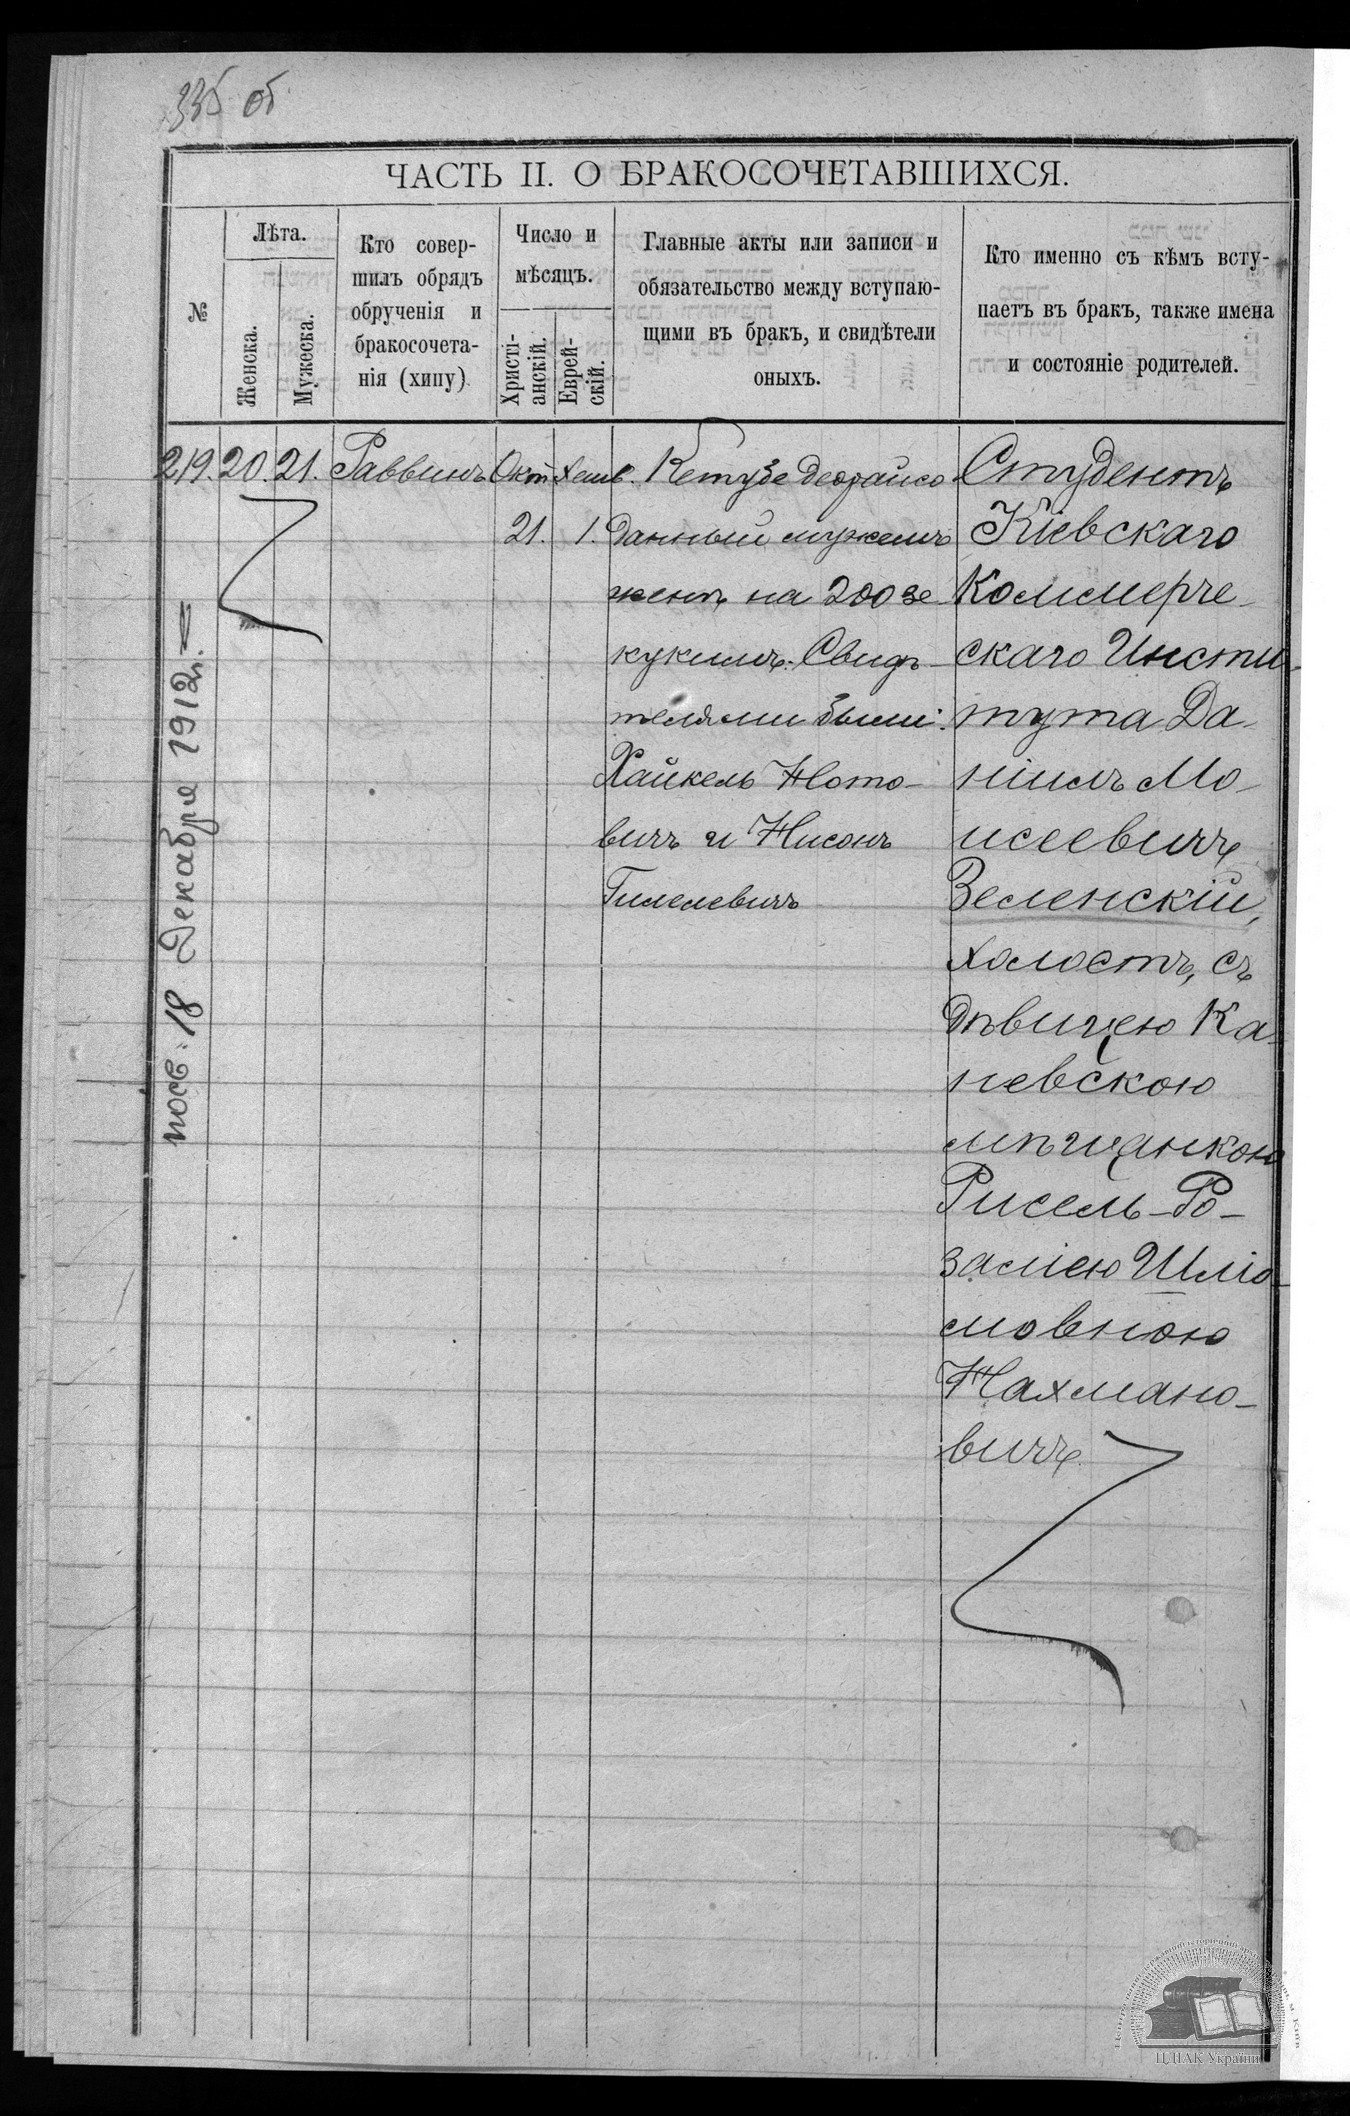 335 об
ЧАСТЬ II. О БРАКОСОЧЕТАВШИХСЯ.
№
Лѣта.
Женска.
Мужеска.
Кто совер-
шилъ обрядъ
обрученія и
бракосочета-
нія (хипу)
Число и
мѣсяцъ.
Христі-
анскій.
Еврей-
скій.
Главные акты или записи и
обязательство между вступаю-
щими въ бракъ, и свидѣтели
оныхъ.
Кто именно съ кѣмъ всту-
паетъ въ бракъ, также имена
и состояніе родителей.
219. 20. 21. Раввинъ
Окт
21.
Хешв.
1.
Кетубе деорайсо
данный мужемъ
женѣ на 200 зе
кукимъ. Свидѣ-
телями были:
Хайкель Ното-
вичъ и Нисонъ
Гилелевичъ
Студентъ
Кіевскаго
Коммерче-
скаго Инсти-
тута Да-
ніилъ Мо-
исеевичъ
Зеленскій,
холостъ, съ
дѣвицею Ка-
невскою
мѣщанкою
Рисель-Ро-
заліею Шліо-
мовною
Нахмано-
вичъ.
посв. 18 Декабря 1912 г.
ЦДІАК України